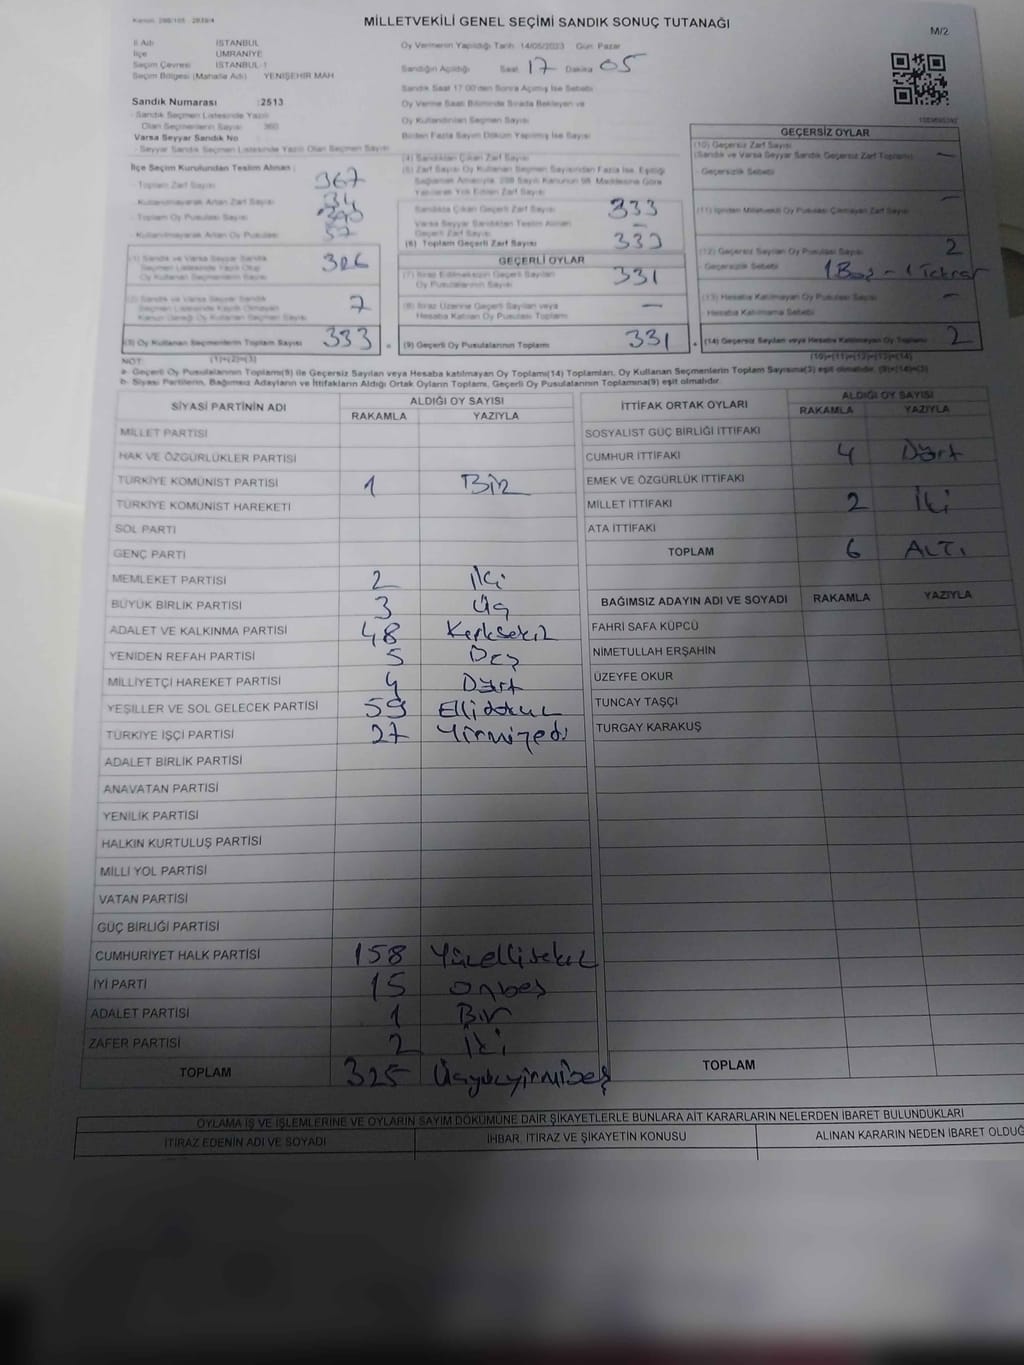 MİLLETVEKİLİ GENEL SEÇİMİ SANDIK SONUÇ TUTANAĞI
M/2
İl Adı : İSTANBUL
İlçe : ÜMRANİYE
Seçim Çevresi : İSTANBUL-1
Seçim Bölgesi (Mahalle Adı) : YENİŞEHİR MAH
Sandık Numarası :2513
- Sandık Seçmen Listesinde Yazılı
Olan Seçmenlerin Sayısı : 360
Varsa Seyyar Sandık No
- Seyyar Sandık Seçmen Listesinde Yazılı Olan Seçmen Sayısı
Oy Vermenin Yapıldığı Tarih: 14/05/2023 Gün: Pazar
Sandığın Açıldığı Saat 17 Dakika 05
Sandık Saat 17.00'den Sonra Açılmış İse Sebebi
Oy Verme Saati Bitiminde Sırada Bekleyen ve
Oy Kullandırılan Seçmen Sayısı
Birden Fazla Sayım Döküm Yapılmış İse Sayısı
İlçe Seçim Kurulundan Teslim Alınan :
- Toplam Zarf Sayısı 367
- Kullanılmayarak Artan Zarf Sayısı 34
- Toplam Oy Pusulası Sayısı
- Kullanılmayarak Artan Oy Pusulası
(1) Sandık ve Varsa Seyyar Sandık
Seçmen Listesinde Yazılı Olup
Oy Kullanan Seçmen Sayısı 326
(2) Sandık ve Varsa Seyyar Sandık
Seçmen Listesinde Kaydı Olmayan
Kanun Gereği Oy Kullanan Seçmen Sayısı 7
(3) Oy Kullanan Seçmenlerin Toplam Sayısı 333
(4) Sandıktan Çıkan Zarf Sayısı
(5) Zarf Sayısı Oy Kullanan Seçmen Sayısından Fazla İse, Eşitliği
Sağlamak Amacıyla, 298 Sayılı Kanunun 98. Maddesine Göre
Yakılarak Yok Edilen Zarf Sayısı
Sandıkta Çıkan Geçerli Zarf Sayısı 333
Varsa Seyyar Sandıktan Teslim Alınan
Geçerli Zarf Sayısı —
(6) Toplam Geçerli Zarf Sayısı 333
GEÇERLİ OYLAR
(7) İtiraz Edilmeksizin Geçerli Sayılan
Oy Pusulalarının Sayısı 331
(8) İtiraz Üzerine Geçerli Sayılan veya
Hesaba Katılan Oy Pusulası Toplamı —
(9) Geçerli Oy Pusulalarının Toplamı 331
GEÇERSİZ OYLAR
(10) Geçersiz Zarf Sayısı
(Sandık ve Varsa Seyyar Sandık Geçersiz Zarf Toplamı) —
- Geçersizlik Sebebi
(11) İçinden Milletvekili Oy Pusulası Çıkmayan Zarf Sayısı —
(12) Geçersiz Sayılan Oy Pusulası Sayısı 2
- Geçersizlik Sebebi 1 Boş - 1 Tekrar
(13) Hesaba Katılmayan Oy Pusulası Sayısı —
Hesaba Katılmama Sebebi
(14) Geçersiz Sayılan veya Hesaba Katılmayan Oy Toplamı 2
NOT: (1)+(2)=(3) (10)+(11)+(12)+(13)=(14)
a- Geçerli Oy Pusulalarının Toplamı(9) ile Geçersiz Sayılan veya Hesaba katılmayan Oy Toplamı(14) Toplamları, Oy Kullanan Seçmenlerin Toplam Sayısına(3) eşit olmalıdır. (9)+(14)=(3)
b- Siyasi Partilerin, Bağımsız Adayların ve İttifakların Aldığı Ortak Oyların Toplamı, Geçerli Oy Pusulalarının Toplamına(9) eşit olmalıdır.
SİYASİ PARTİNİN ADI ALDIĞI OY SAYISI
RAKAMLA YAZIYLA
MİLLET PARTİSİ
HAK VE ÖZGÜRLÜKLER PARTİSİ
TÜRKİYE KOMÜNİST PARTİSİ 1 Bir
TÜRKİYE KOMÜNİST HAREKETİ
SOL PARTİ
GENÇ PARTİ
MEMLEKET PARTİSİ 2 iki
BÜYÜK BİRLİK PARTİSİ 3 Üç
ADALET VE KALKINMA PARTİSİ 48 Kırksekiz
YENİDEN REFAH PARTİSİ 5 Beş
MİLLİYETÇİ HAREKET PARTİSİ 4 Dört
YEŞİLLER VE SOL GELECEK PARTİSİ 59 Ellidokuz
TÜRKİYE İŞÇİ PARTİSİ 27 Yirmiyedi
ADALET BİRLİK PARTİSİ
ANAVATAN PARTİSİ
YENİLİK PARTİSİ
HALKIN KURTULUŞ PARTİSİ
MİLLİ YOL PARTİSİ
VATAN PARTİSİ
GÜÇ BİRLİĞİ PARTİSİ
CUMHURİYET HALK PARTİSİ 158 Yüzellisekiz
İYİ PARTİ 15 Onbeş
ADALET PARTİSİ 1 Bir
ZAFER PARTİSİ 2 İki
TOPLAM 325 Üçyüzyirmibeş
İTTİFAK ORTAK OYLARI ALDIĞI OY SAYISI
RAKAMLA YAZIYLA
SOSYALİST GÜÇ BİRLİĞİ İTTİFAKI
CUMHUR İTTİFAKI 4 Dört
EMEK VE ÖZGÜRLÜK İTTİFAKI
MİLLET İTTİFAKI 2 İki
ATA İTTİFAKI
TOPLAM 6 ALTI
BAĞIMSIZ ADAYIN ADI VE SOYADI RAKAMLA YAZIYLA
FAHRİ SAFA KÜPCÜ
NİMETULLAH ERŞAHİN
ÜZEYFE OKUR
TUNCAY TAŞÇI
TURGAY KARAKUŞ
TOPLAM
OYLAMA İŞ VE İŞLEMLERİNE VE OYLARIN SAYIM DÖKÜMÜNE DAİR ŞİKAYETLERLE BUNLARA AİT KARARLARIN NELERDEN İBARET BULUNDUKLARI
İTİRAZ EDENİN ADI VE SOYADI İHBAR, İTİRAZ VE ŞİKAYETİN KONUSU ALINAN KARARIN NEDEN İBARET OLDUĞ